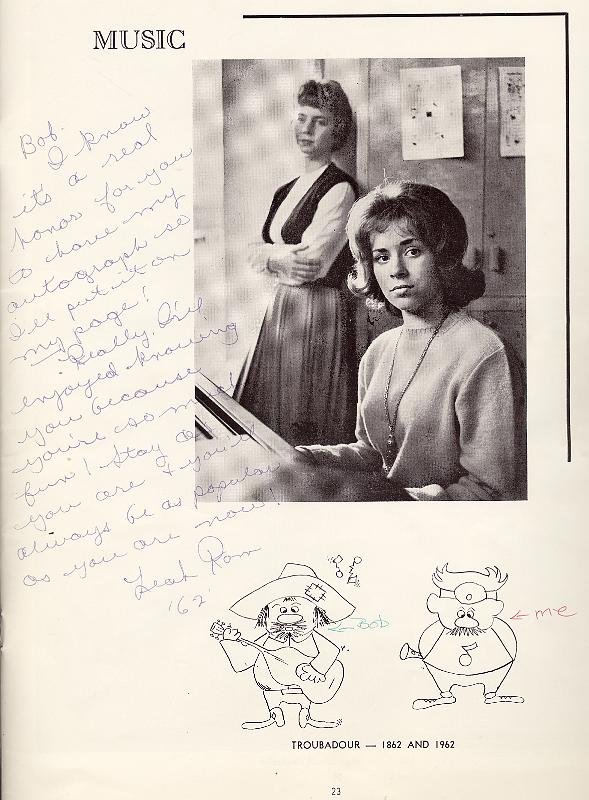 MUSIC
Bob.
I know
it's a real
honor for you
to have my
autograph so
I'll put it on
my page!
Really, I've
enjoyed knowing
you because
you're so much
fun! Stay as
you are & you'll
always be as popular
as you are now!
Leah Rom
'62'
BOB
me
TROUBADOUR — 1862 AND 1962
23